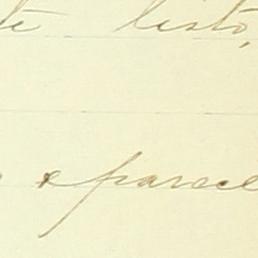 te listo,
aparece